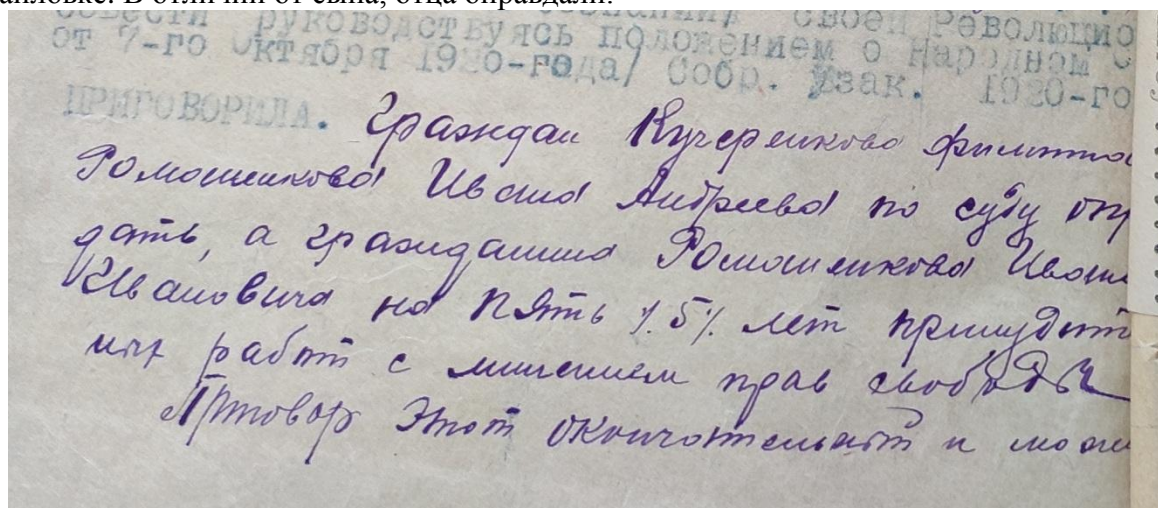 В отличии от сына, отца оправдали.
совести руководствуясь положением о Народном С
своей Революцио
от 7-го Октября 1920-года/ Собр. Узак. 1920-го
ПРИГОВОРИЛА. Граждан Кучеренково Филиппа
Ромошенкова Ивана Андреева по суду опр
дать, а гражданина Ромошенкова Ивана
Ивановича на Пять /.5/. лет принудит
ных работ с лишением прав свободы
Приговор этот окончательный и може